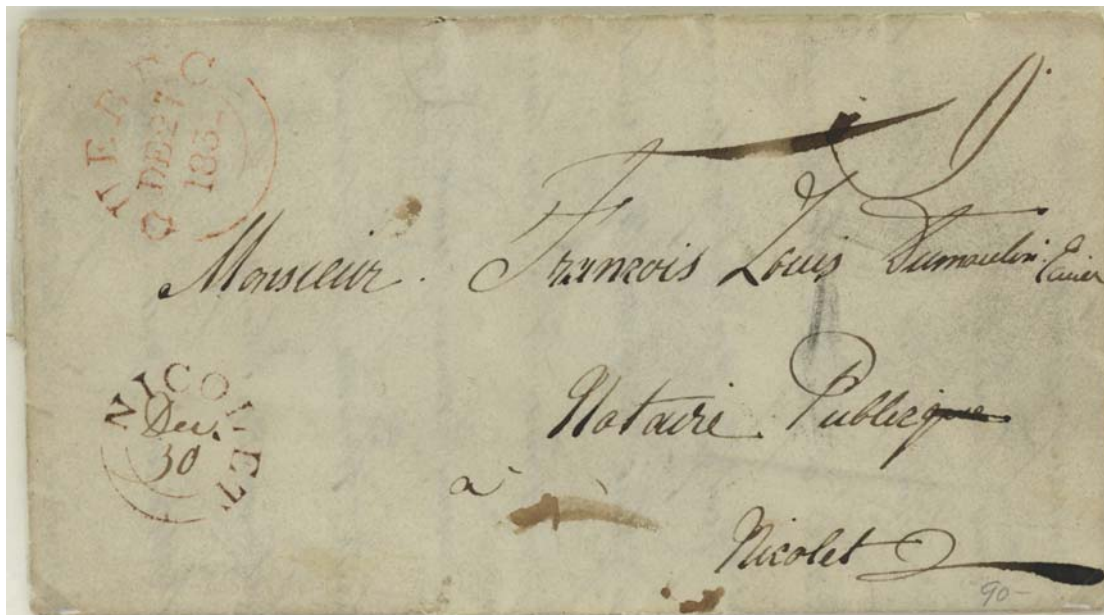 QUEBEC
DE 27
183
Monsieur. François Louis Dumoulin. Ecuier
NICOLET
Dec.
30
Notaire Publicque
à
Nicolet
90-